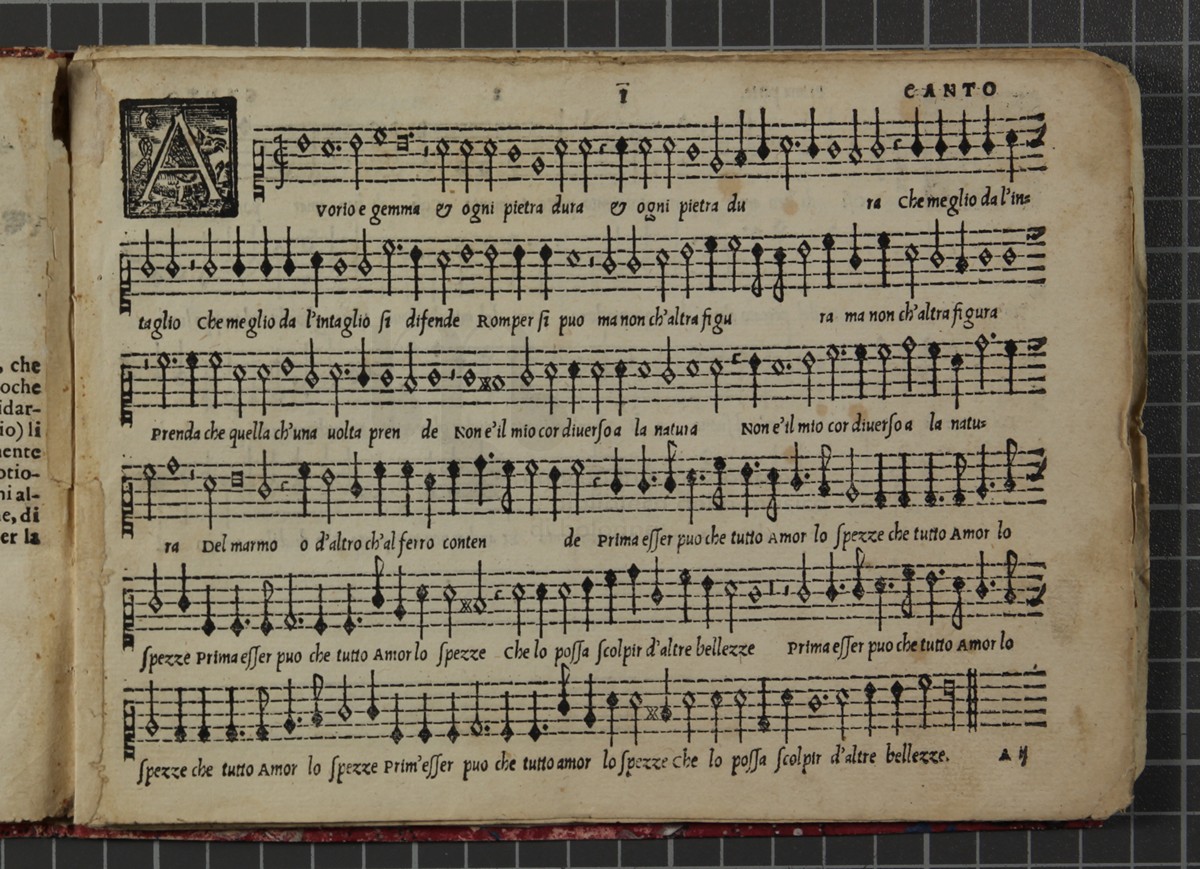 1 CANTO
A
vorio e gemma & ogni pietra dura & ogni pietra du ra Che meglio da l'in=
taglio Che meglio da l'intaglio si difende Romper si puo ma non ch'altra figu ra ma non ch'altra figura
Prenda che quella ch'una uolta pren de Non e'il mio cor diuerso a la natura Non e'il mio cor diuerso a la natu=
ra Del marmo o d'altro ch'al ferro conten de Prima esser puo che tutto Amor lo spezze che tutto Amor lo
spezze Prima esser puo che tutto Amor lo spezze Che lo possa scolpir d'altre bellezze Prima esser puo che tutto Amor lo
spezze che tutto Amor lo spezze Prim'esser puo che tutto amor lo spezze Che lo possa scolpir d'altre bellezze.
A ij
, che
oche
idar-
io) li
nente
otio-
ni al-
ne, di
er la